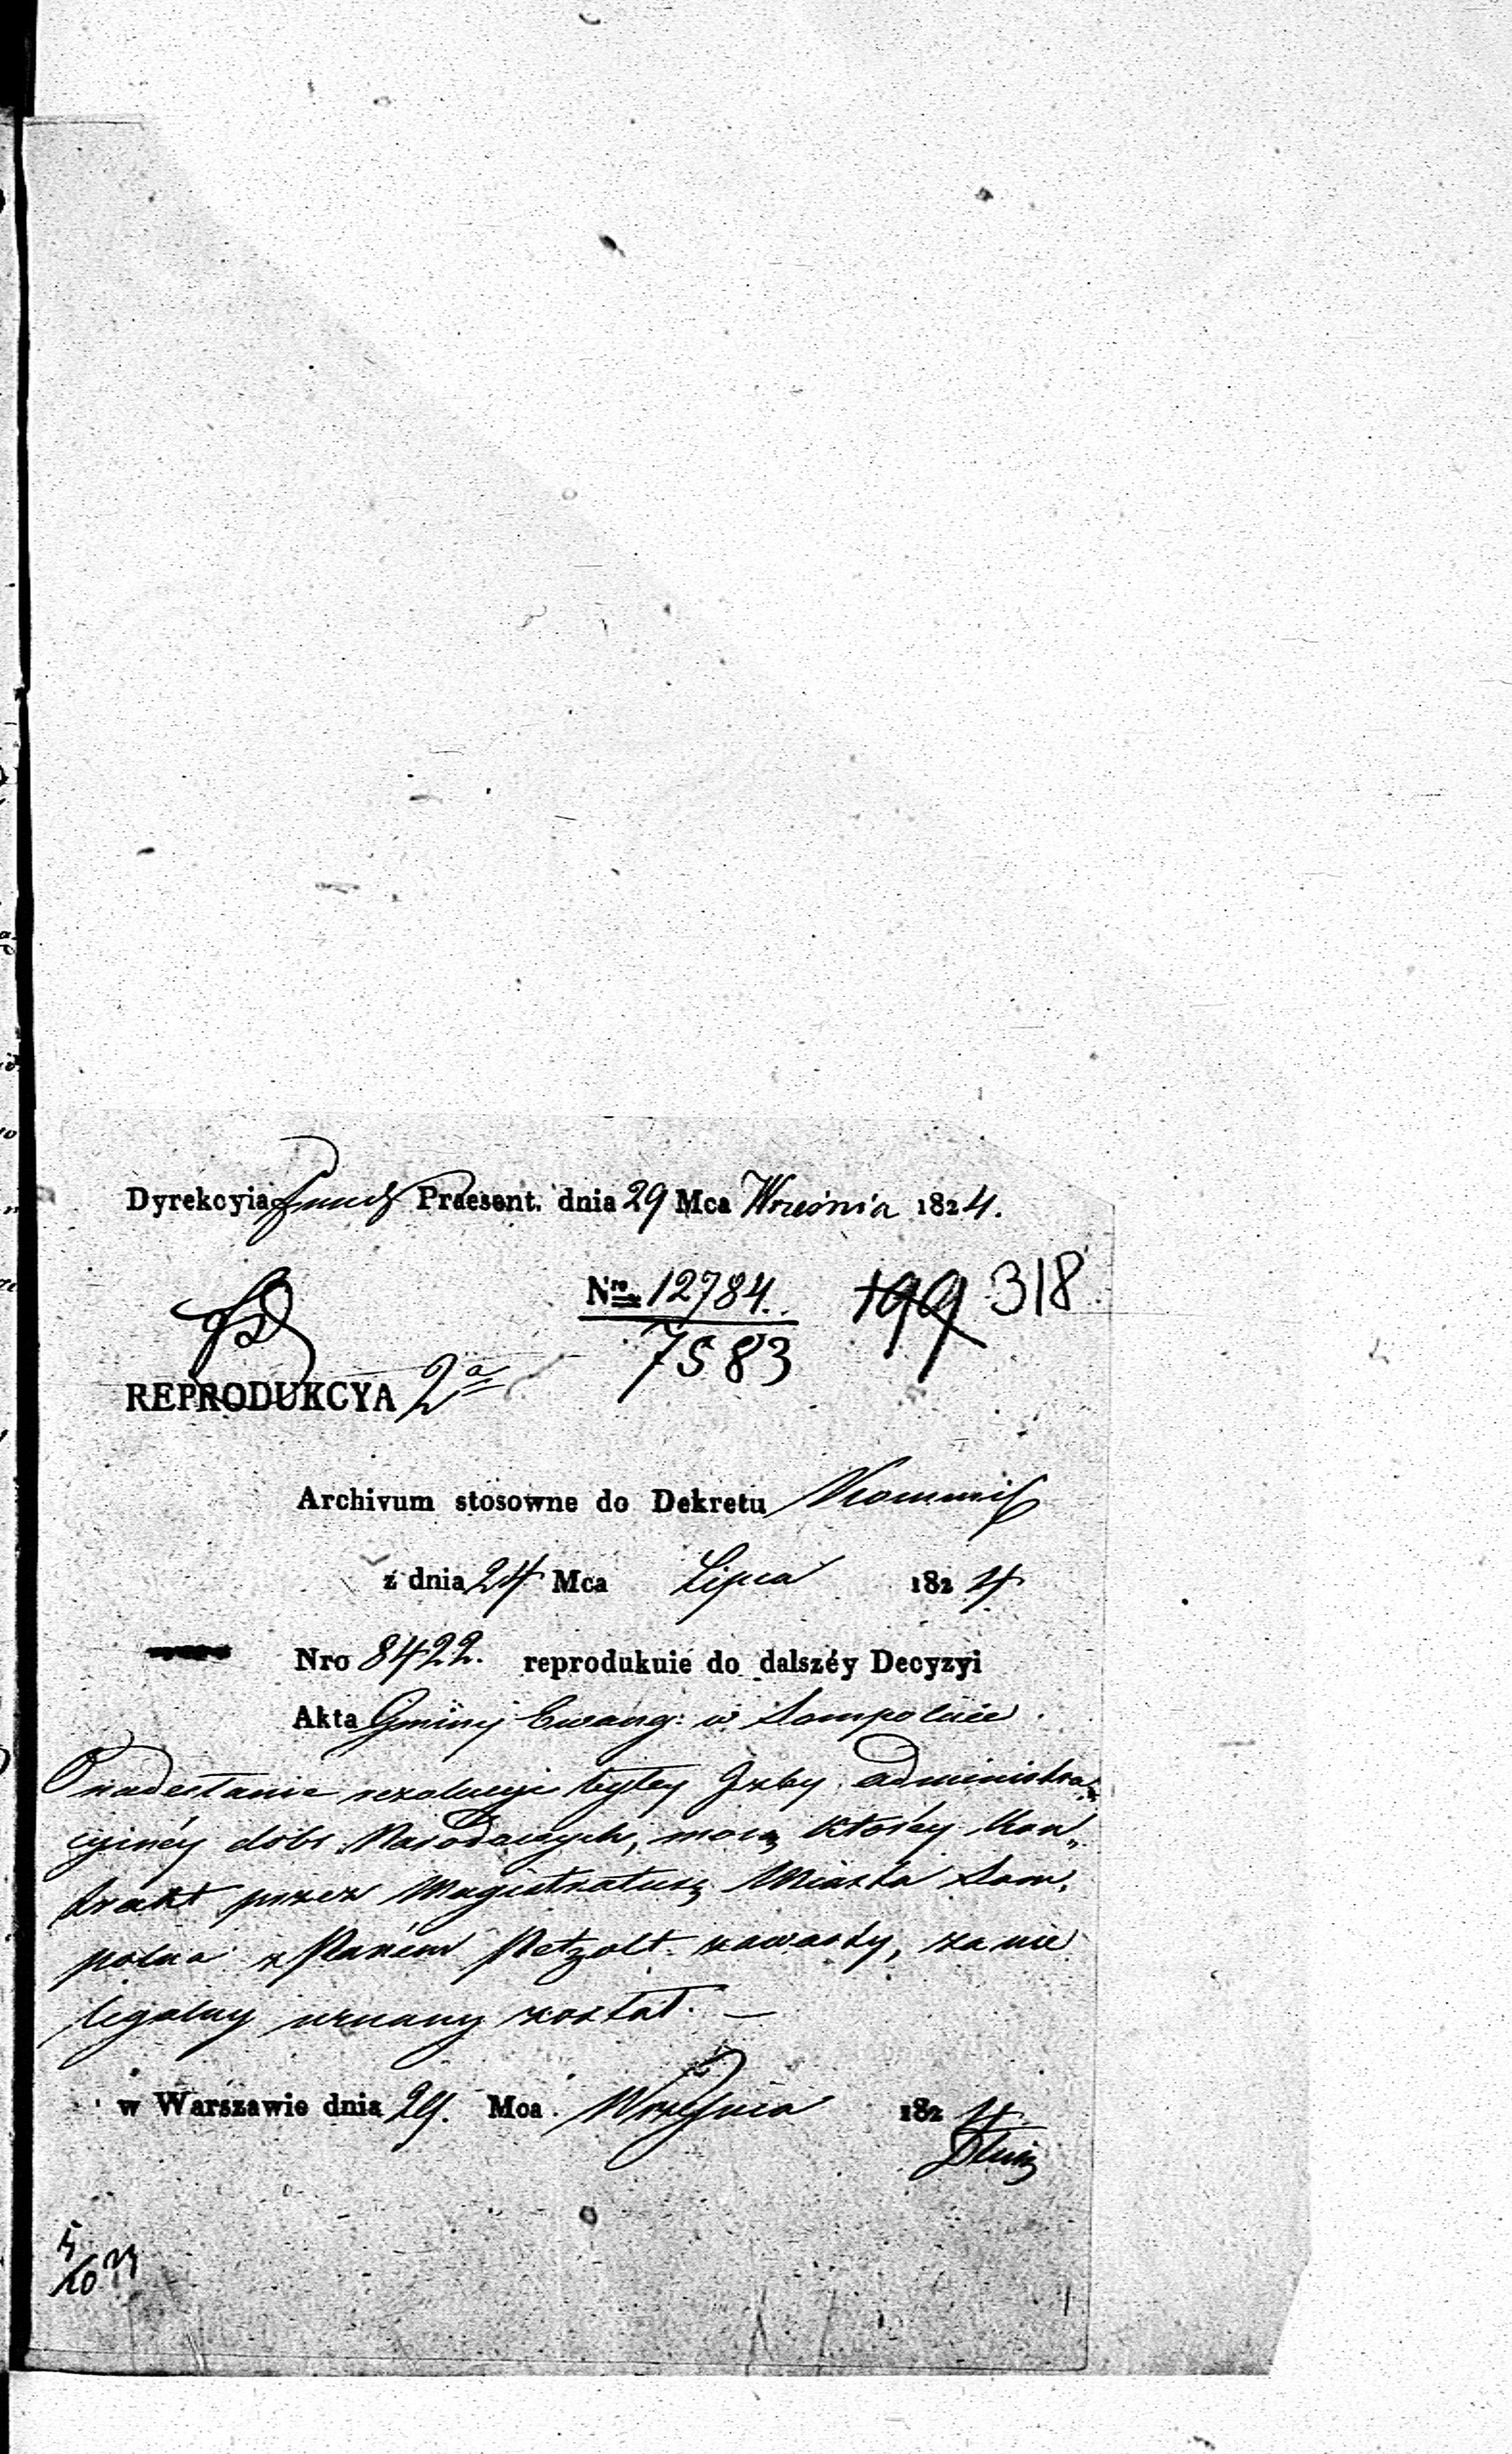 Dyrekcyia Praesent. dnia 29 Mca Września 1824.
Nro 12784. 199 318
7583
REPRODUKCYA 2a
Archivum stosowne do Dekretu Kommiss
z dnia 24 Mca Lipca 1824
Nro 8422. reprodukuie do dalszéy Decyzyi
Akta Gminy Ewang: w Sompolnie.
O nadesłanie rezolucyi byłey Izby administra-
cyinéy dóbr Narodowych, mocą któréy Kon-
trakt przez Magistraturę Miasta Som-
polna z Panem Petzolt zawarty, za nie
legalny uznany został. —
w Warszawie dnia 29. Mca Września 1824
5/10 24